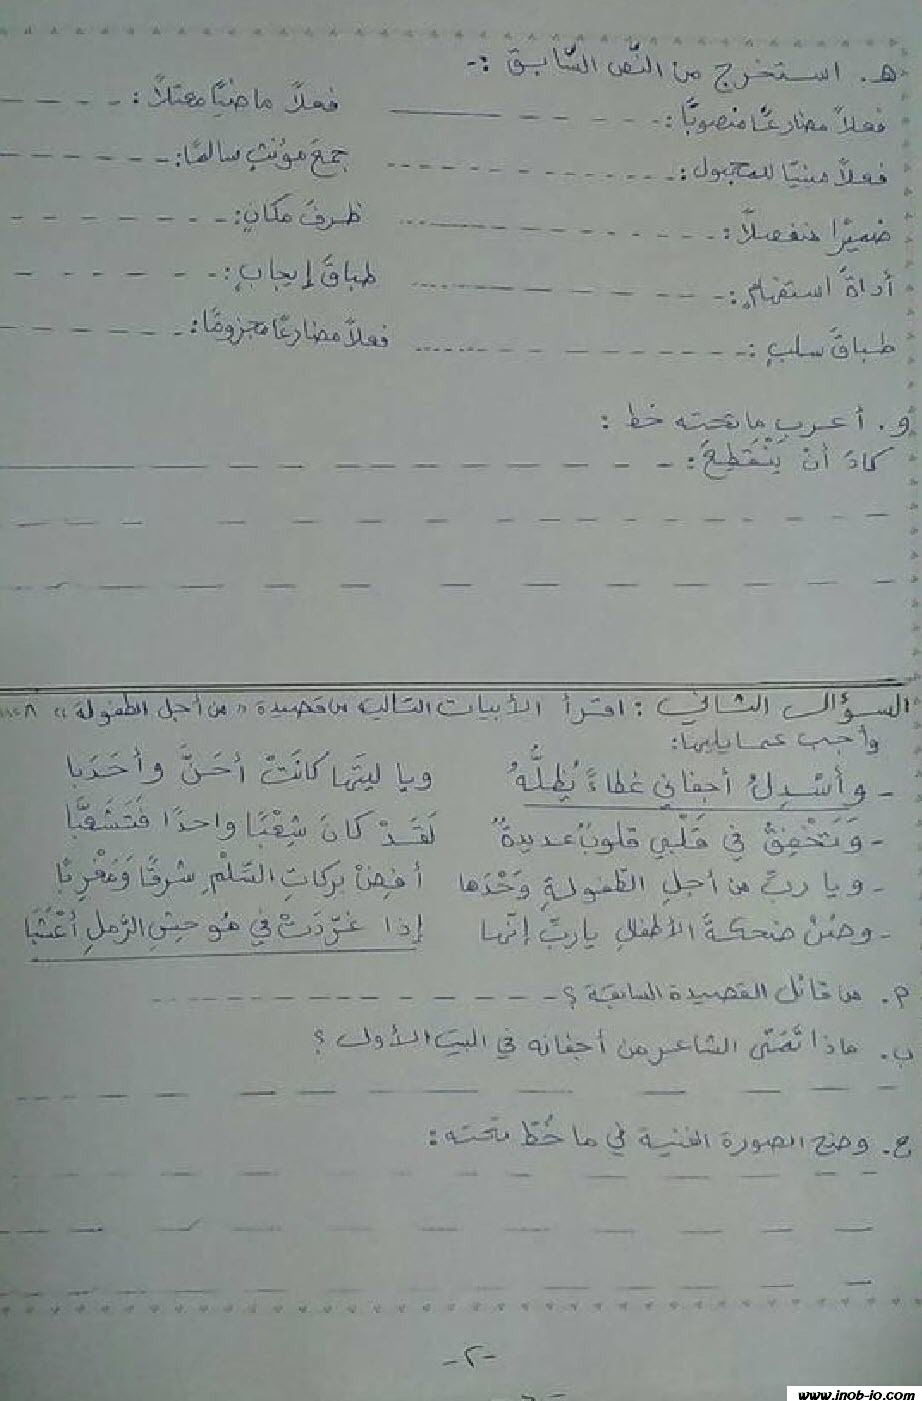 هـ. استخرج من النّص السّابق :-
فعلاً مضارعًا منصوبًا: فعلاً ماضيًا معتلاً:
فعلاً مبنيًا للمجهول: جمعَ مؤنثٍ سالمًا:
ضميرًا منفصلاً: ظرفَ مكانٍ:
أداةَ استفهامٍ: طباقَ إيجابٍ:
طباقَ سلبٍ: فعلاً مضارعًا مجزومًا:
و. أعرب ما تحته خط :
كادَ أنْ يَنْقَطِعَ:
السؤال الثاني : اقرأ الأبيات التالية من قصيدة "من أجل الطفولة"
وأجب عما يليها:
- وأسْدِلُ أجفاني غطاءً يُظِلُّهُ ويا ليتَها كانَتْ أحَنَّ وأحدَبا
- وَتَخْفِقُ في قَلْبي قلوبٌ عديدةٌ لَقَدْ كانَ شِعْبًا واحدًا فَتَشَعَّبا
- ويا ربّ من أجلِ الطّفولةِ وَحْدَها أفِضْ بركاتِ السّلْمِ شرقًا وَمَغْرِبًا
- وصُنْ ضحكةَ الأطفالِ ياربّ إنّها إذا غَرّدَتْ في مُوحِشِ الرّملِ أعْشَبَا
م. من قائل القصيدة السابقة ؟
ب. ماذا تَمَنّى الشاعر من أجفانه في البيت الأول ؟
ج. وضح الصورة الفنية في ما خُطّ تحته :
-٢-
www.inob-io.com